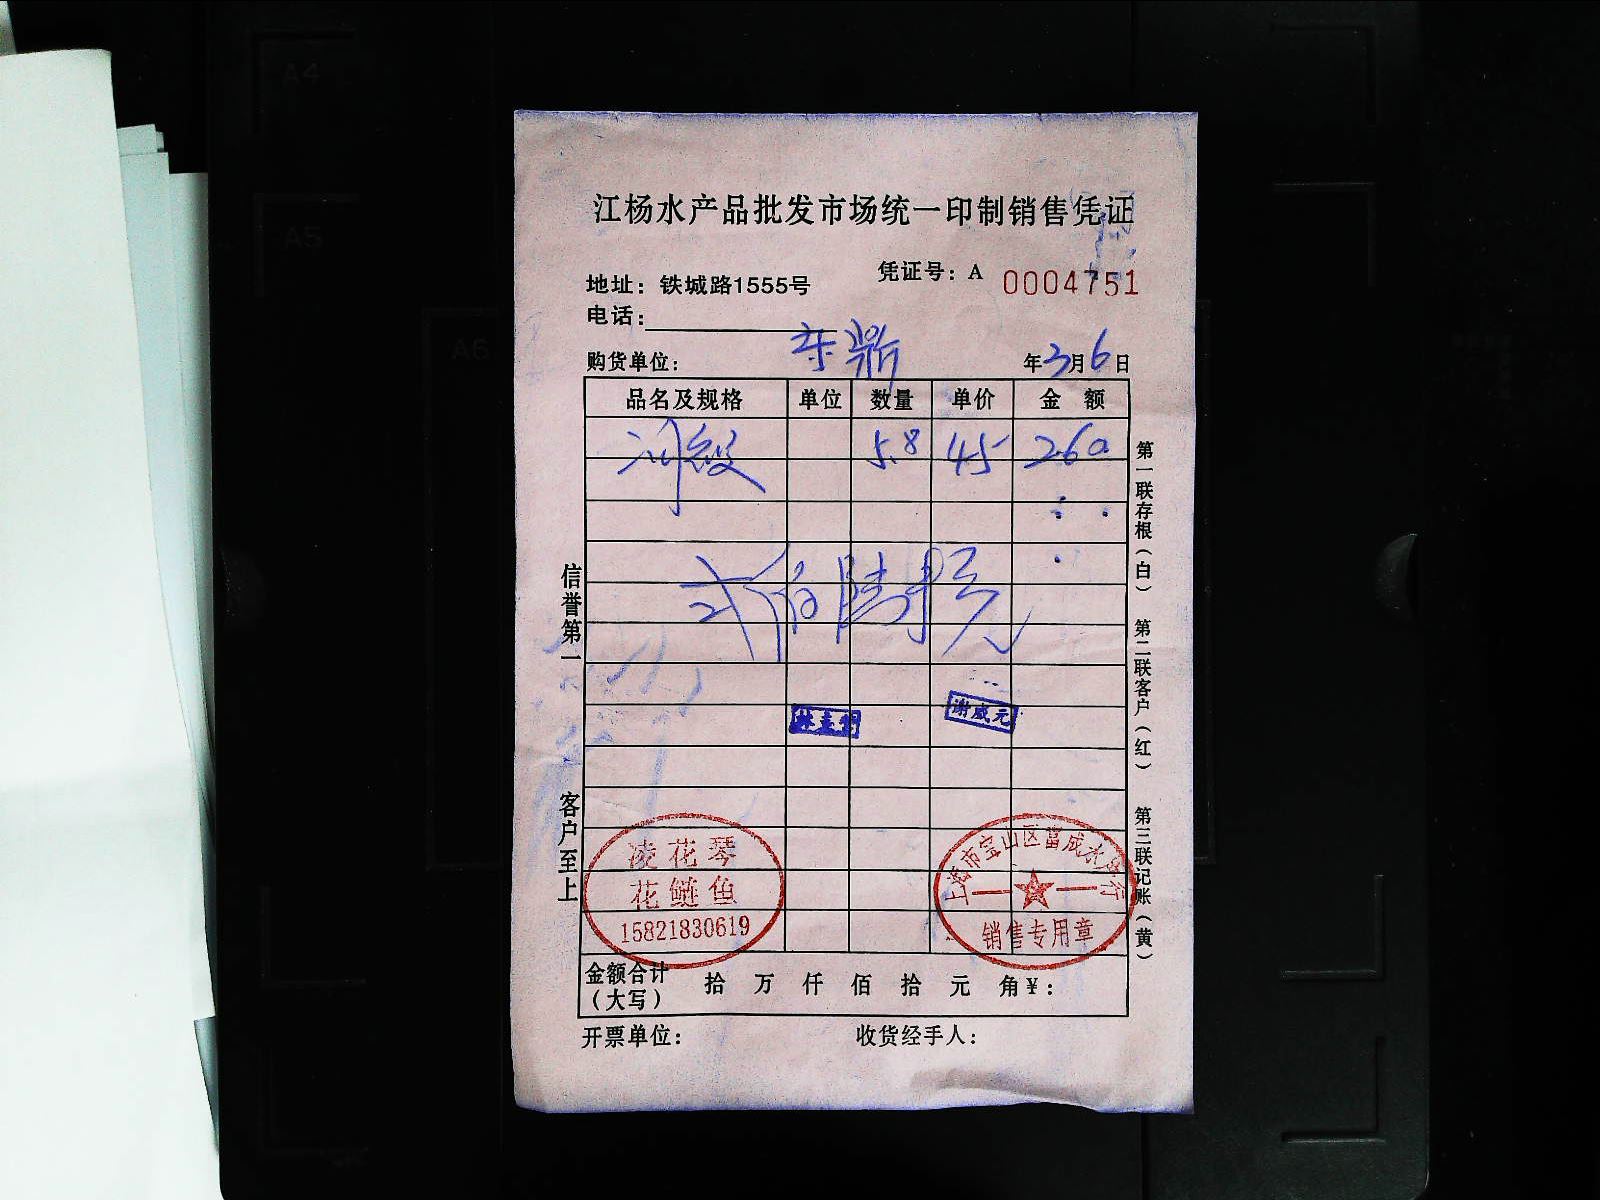 江杨水产品批发市场统一印制销售凭证
地址：铁城路1555号
凭证号：A 0004751
电话：
购货单位： 东鼎 年3月6日
品名及规格 单位 数量 单价 金额
5.8 45 260
弍佰陆拾元
谢咸元
凌花琴
花鲢鱼
15821830619
上海市宝山区富成水产行
销售专用章
金额合计（大写） 拾 万 仟 佰 拾 元 角¥：
开票单位： 收货经手人：
信誉第一 客户至上
第一联存根（白） 第二联客户（红） 第三联记账（黄）
A4
A5
A6